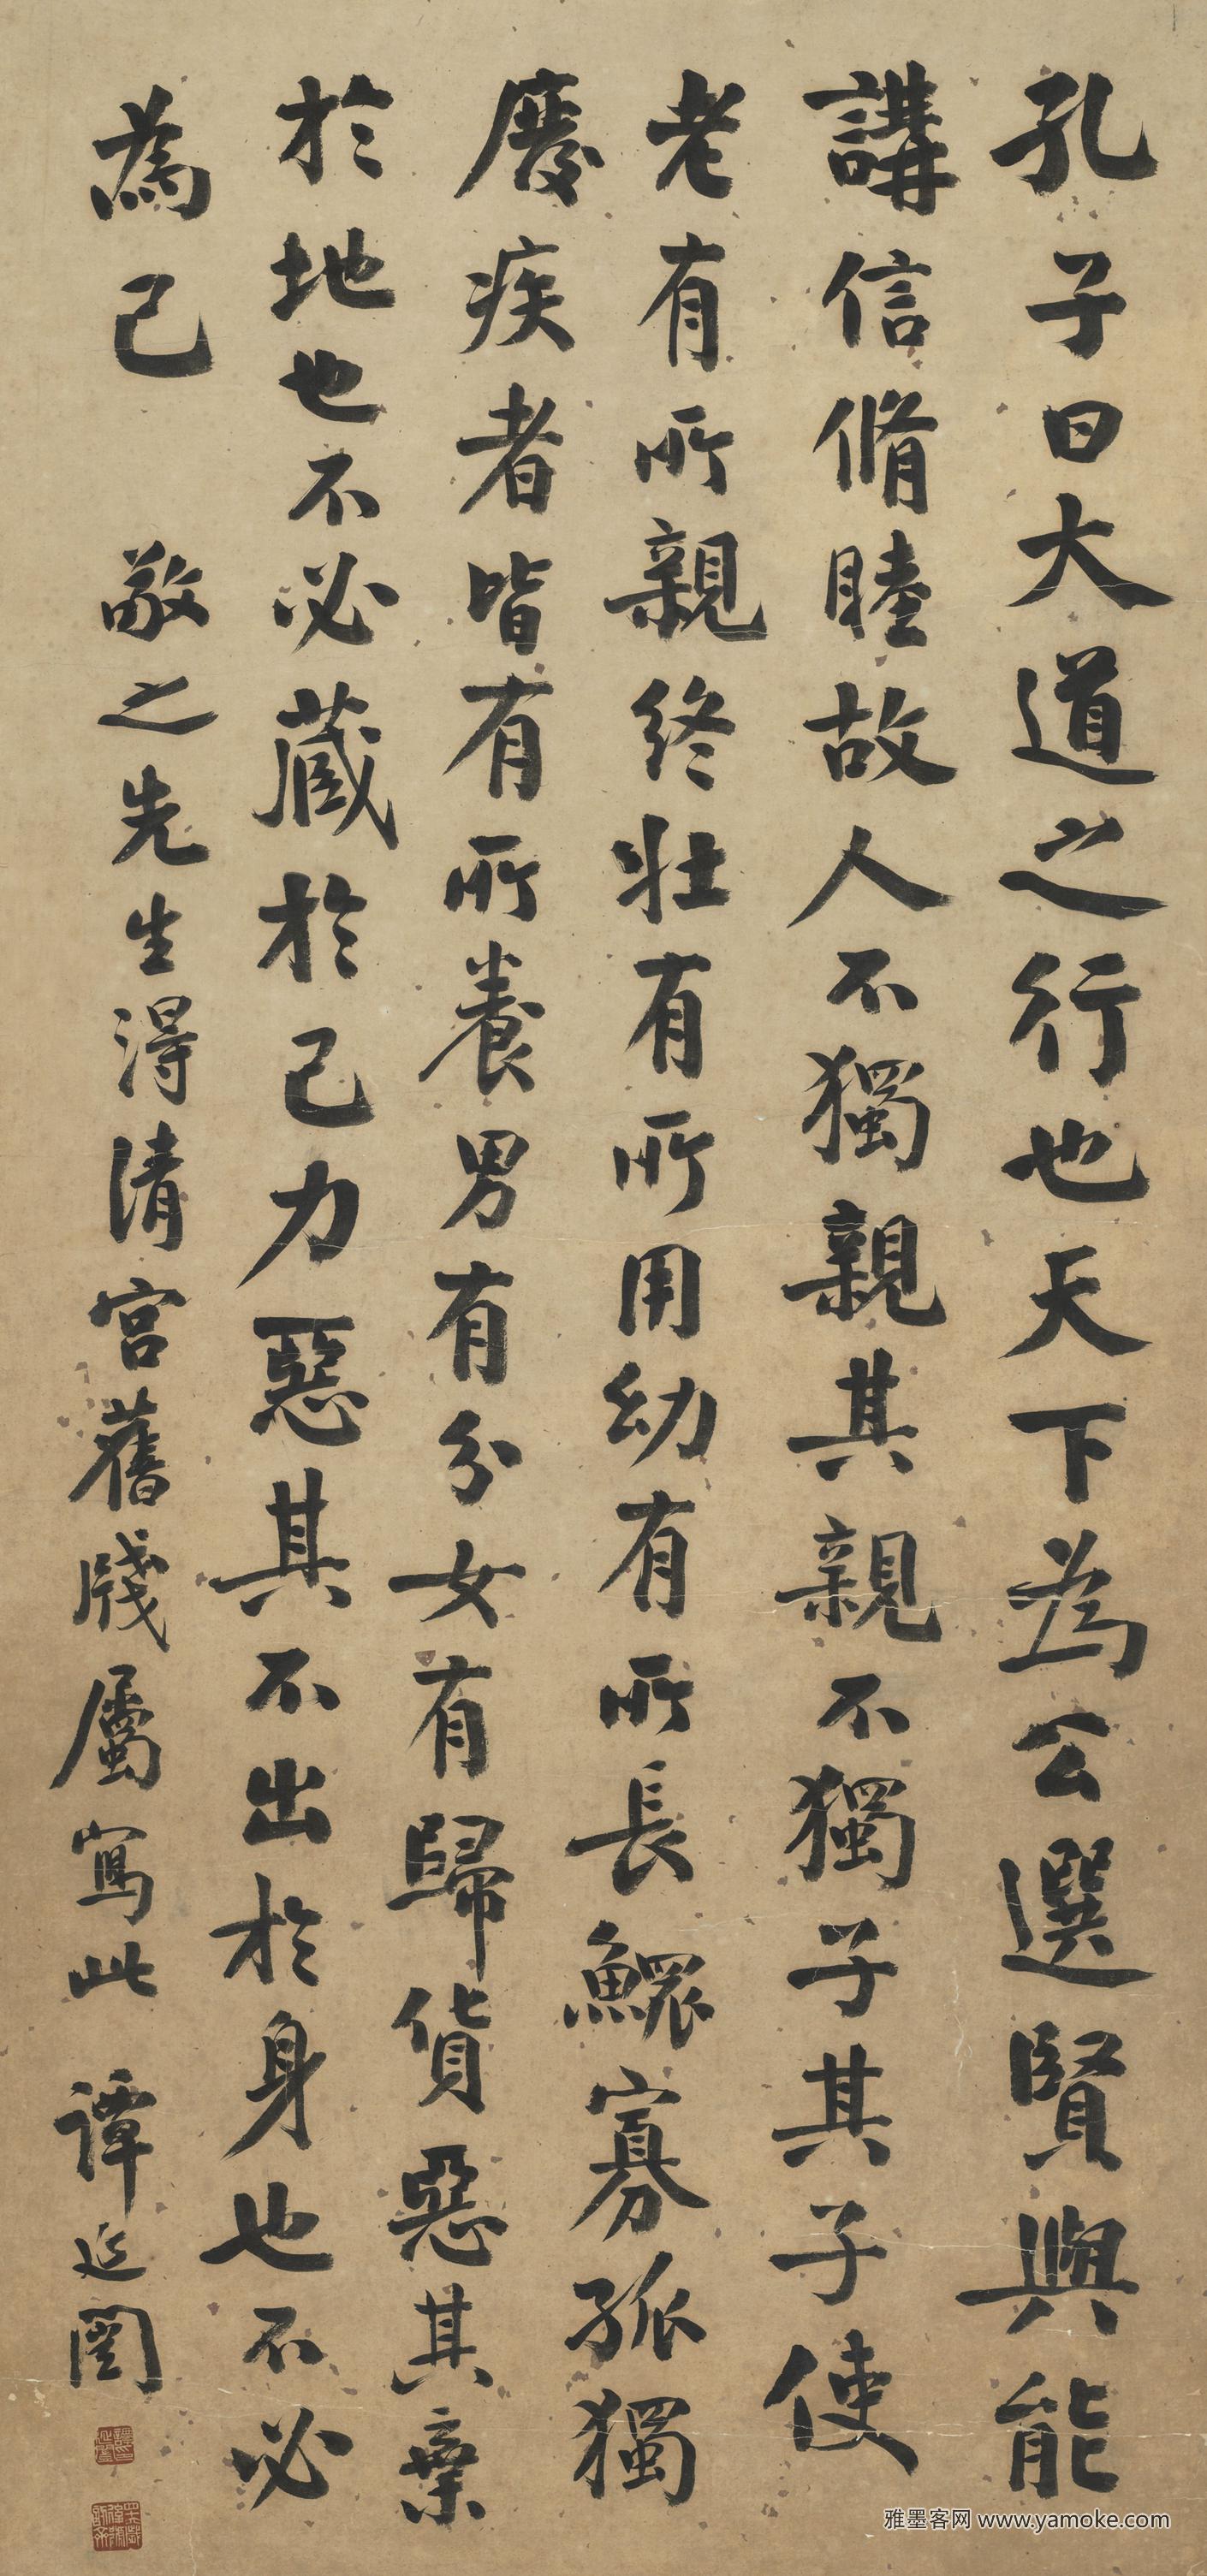 孔子曰大道之行也天下為公選賢與能
講信脩睦故人不獨親其親不獨子其子使
老有所親終壯有所用幼有所長鰥寡孤獨
廢疾者皆有所養男有分女有歸貨惡其棄
於地也不必藏於己力惡其不出於身也不必
為己 敬之先生得清宮舊牋屬寫此 譚延闓
雅墨客网 www.yamoke.com